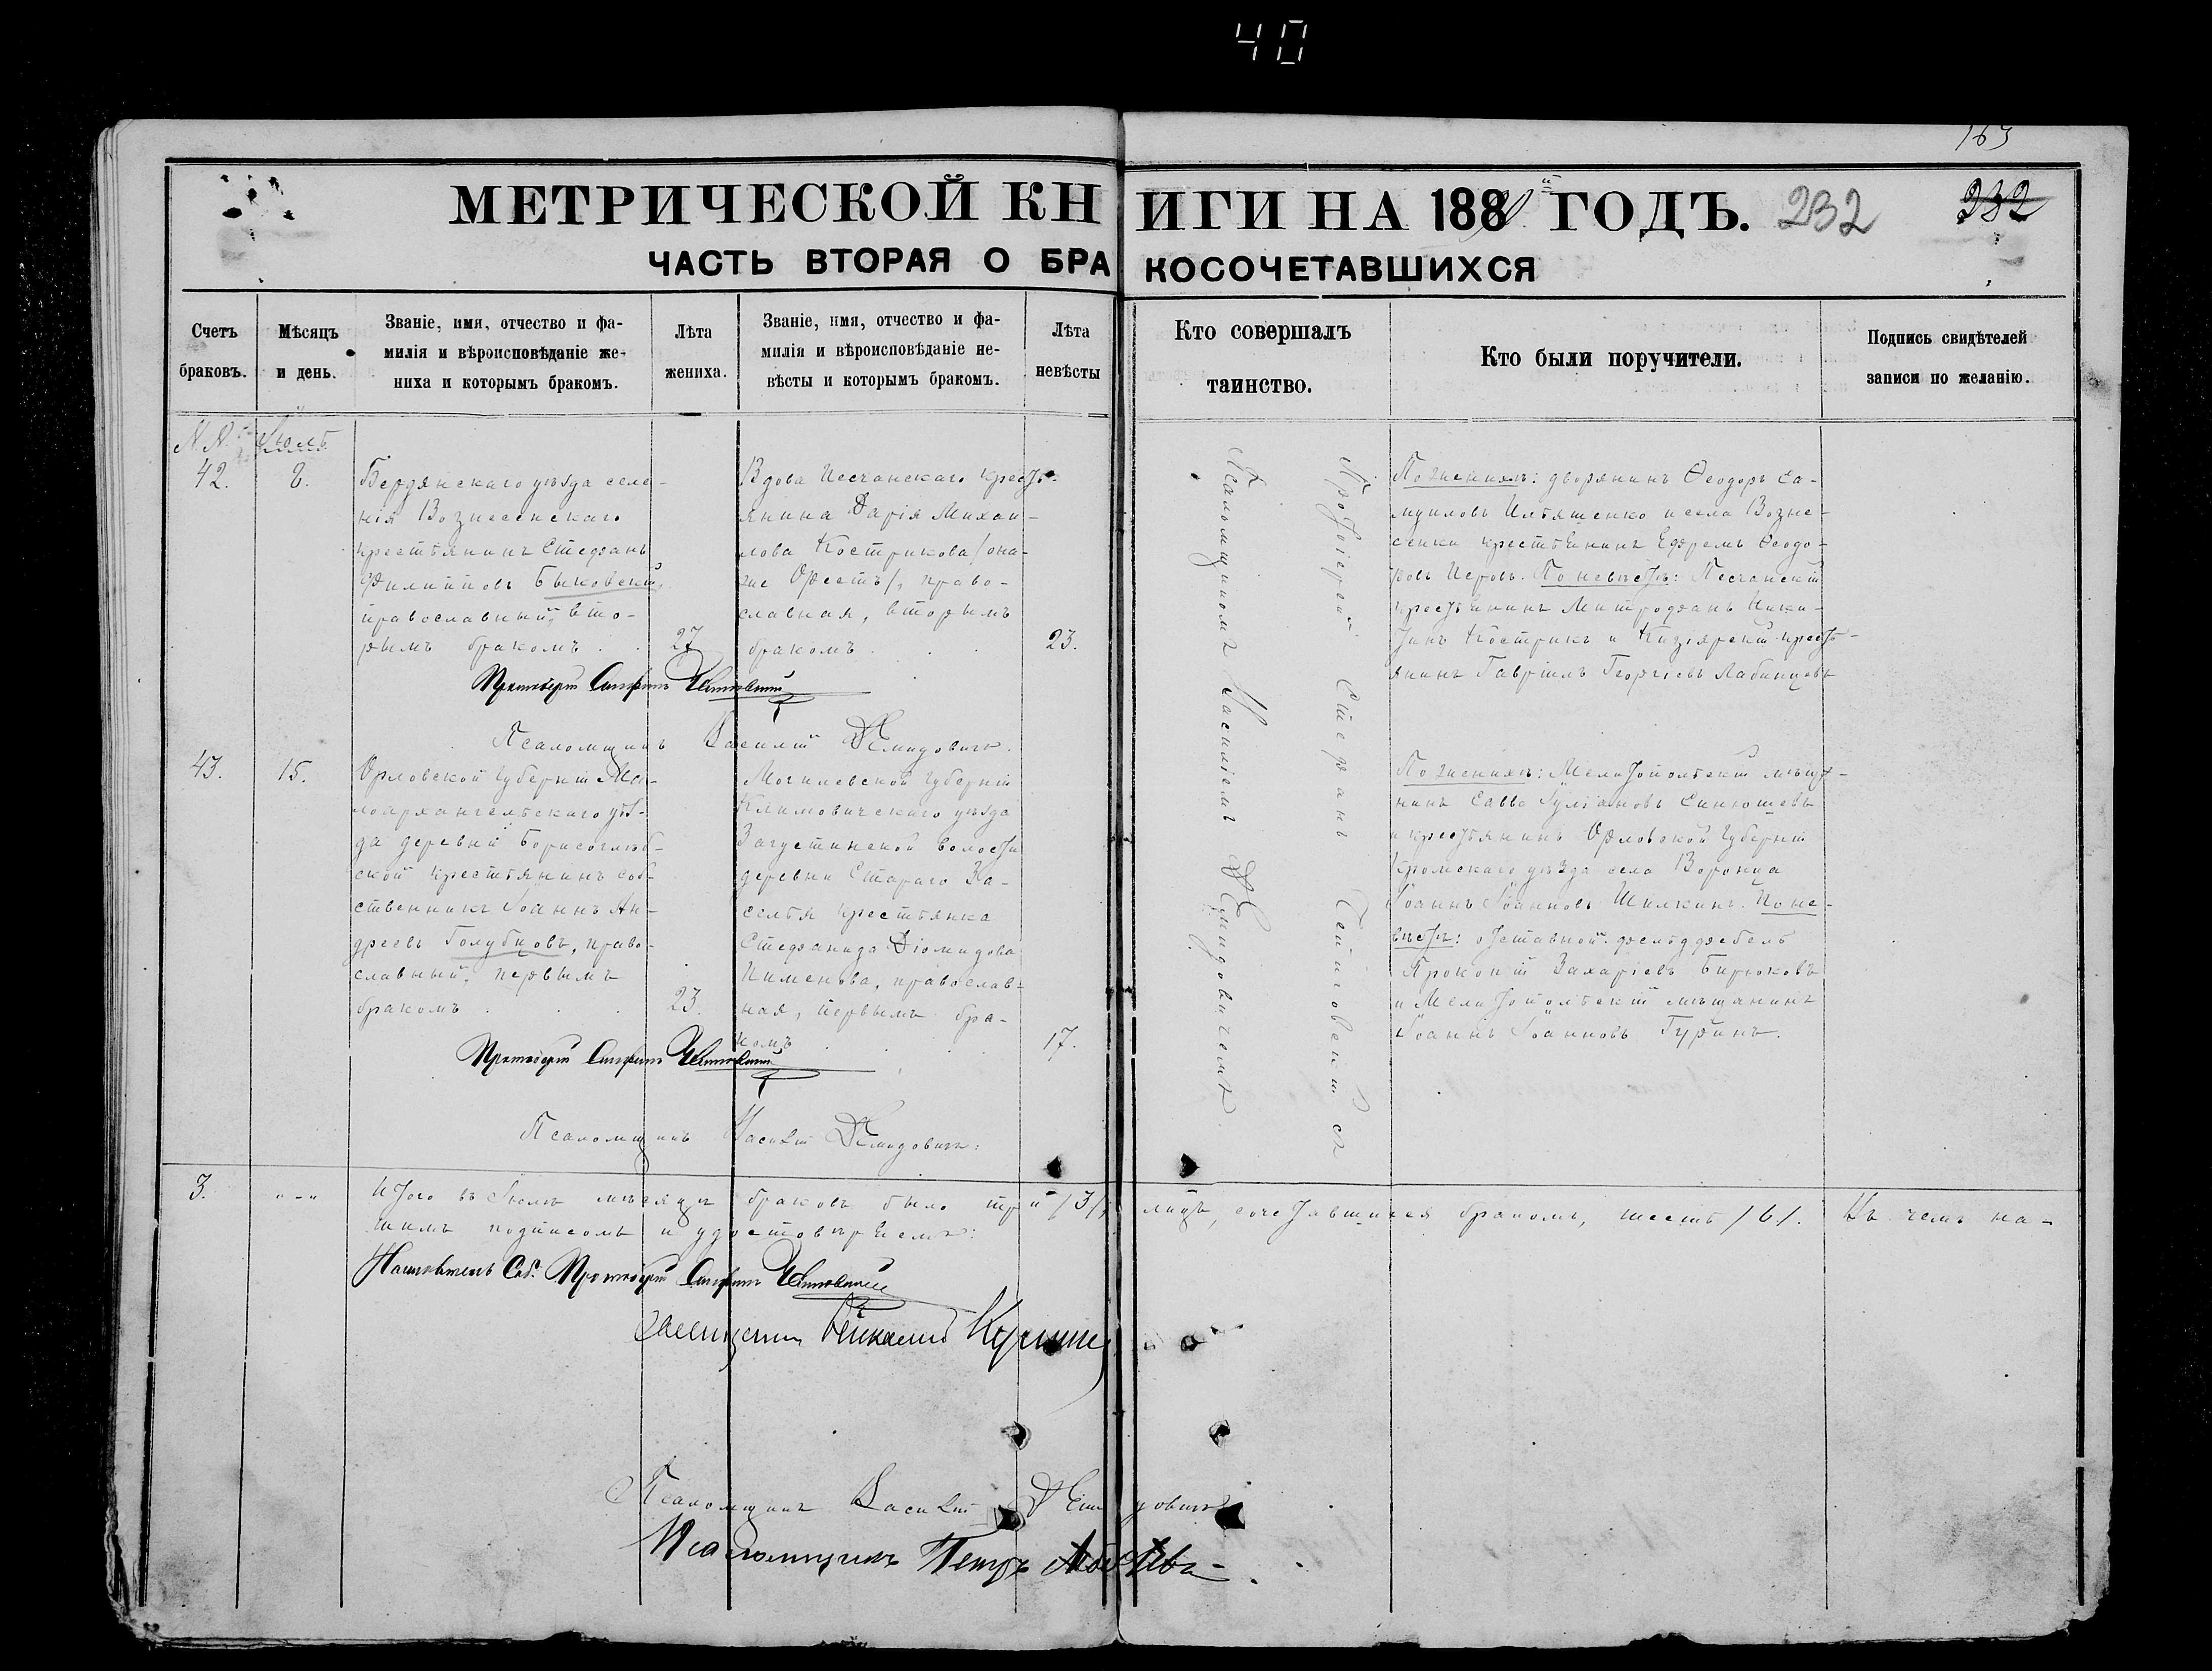 40
163
МЕТРИЧЕСКОЙ КНИГИ НА 188 ГОДЪ. 232 232
ЧАСТЬ ВТОРАЯ О БРАКОСОЧЕТАВШИХСЯ
Счетъ браковъ.
Мѣсяцъ и день.
Званіе, имя, отчество и фа-
милія и вѣроисповѣданіе же-
ниха и которымъ бракомъ.
Лѣта жениха.
Званіе, имя, отчество и фа-
милія и вѣроисповѣданіе не-
вѣсты и которымъ бракомъ.
Лѣта невѣсты
Кто совершалъ
таинство.
Кто были поручители.
Подпись свидѣтелей
записи по желанію.
42.
8.
Бердянскаго уѣзда селе-
нія Вознесенскаго
крестьянинъ Стефанъ
Филипповъ Быковскій,
православный, вто-
рымъ бракомъ . .
27
Вдова Песчанскаго кресть-
янина Дарія Михаи-
лова Кострикова /она-
же Орестъ/, право-
славная, вторымъ
бракомъ . . .
23.
Протоіереемъ Стефаномъ съ
Псаломщикомъ Василіемъ Демидовичемъ.
По женихѣ: дворянинъ Ѳеодоръ Са-
муиловъ Ильяшенко и села Возне-
сенки крестьянинъ Ефремъ Ѳеодо-
ровъ Перовъ. По невѣстѣ: Песчанскій
крестьянинъ Митрофанъ Ники-
тинъ Кострикъ и Кизіярскій кресть-
янинъ Гавріилъ Георгіевъ Лабинцевъ
Протоіерей Стефанъ
Псаломщикъ Василій Демидовичъ.
43.
15.
Орловской Губерніи Ма-
лоархангельскаго уѣз-
да деревни Борисоглѣб-
ской крестьянинъ соб-
ственникъ Іоаннъ Ан-
дреевъ Голубцовъ, право-
славный, первымъ
бракомъ . . .
23.
Могилевской Губерніи
Климовичскаго уѣзда
Загустинской волости
деревни Стараго За-
селья крестьянка
Стефанида Діомидова
Пименова, православ-
ная, первымъ бра-
комъ
17.
По женихѣ: Мелитопольскій мѣща-
нинъ Савва Іуліановъ Синюшевъ
и крестьянинъ Орловской Губерніи
Кромскаго уѣзда села Воронца
Іоаннъ Іоанновъ Шилкинъ. По не-
вѣстѣ: отставной фельдфебель
Прокопій Захаріевъ Бирюковъ
и Мелитопольскій мѣщанинъ
Іоаннъ Іоанновъ Гуринъ.
Протоіерей Стефанъ
Псаломщикъ Василій Демидовичъ.
3.
"-"
Итого въ Іюлѣ мѣсяцѣ браковъ было три /3/, лицъ, сочетавшихся бракомъ, шесть /6/. Въ чемъ на-
шимъ подписомъ и удостовѣряемъ:
Настоятель Соб. Протоіерей Стефанъ
Священникъ
Псаломщикъ Василій Демидовичъ
Псаломщикъ Петръ